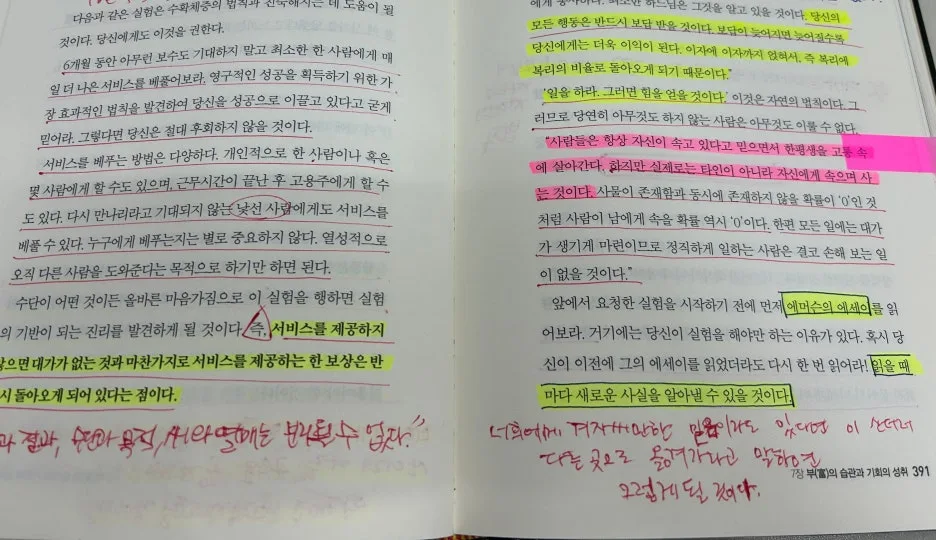 다음과 같은 실험은 수확체증의 법칙과 친숙해지는 데 도움이 될
것이다. 당신에게도 이것을 권한다.
6개월 동안 아무런 보수도 기대하지 말고 최소한 한 사람에게 매
일 더 나은 서비스를 베풀어보라. 영구적인 성공을 획득하기 위한 가
장 효과적인 법칙을 발견하여 당신을 성공으로 이끌고 있다고 굳게
믿어라. 그렇다면 당신은 절대 후회하지 않을 것이다.
서비스를 베푸는 방법은 다양하다. 개인적으로 한 사람이나 혹은
몇 사람에게 할 수도 있으며, 근무시간이 끝난 후 고용주에게 할 수
도 있다. 다시 만나리라고 기대되지 않는 낯선 사람에게도 서비스를
베풀 수 있다. 누구에게 베푸는지는 별로 중요하지 않다. 열성적으로
오직 다른 사람을 도와준다는 목적으로 하기만 하면 된다.
수단이 어떤 것이든 올바른 마음가짐으로 이 실험을 행하면 실험
의 기반이 되는 진리를 발견하게 될 것이다. 즉, 서비스를 제공하지
않으면 대가가 없는 것과 마찬가지로 서비스를 제공하는 한 보상은 반
시 돌아오게 되어 있다는 점이다.
과 결과, 수단과 목적, 씨와 열매는 분리될 수 없다."
것이다. 당신의
모든 행동은 반드시 보답 받을 것이다. 보답이 늦어지면 늦어질수록
당신에게는 더욱 이익이 된다. 이자에 이자까지 얹혀서, 즉 복리에
복리의 비율로 돌아오게 되기 때문이다."
'일을 하라. 그러면 힘을 얻을 것이다.' 이것은 자연의 법칙이다. 그
러므로 당연히 아무것도 하지 않는 사람은 아무것도 이룰 수 없다.
"사람들은 항상 자신이 속고 있다고 믿으면서 한평생을 고통 속
에 살아간다. 하지만 실제로는 타인이 아니라 자신에게 속으며 사
는 것이다. 사물이 존재함과 동시에 존재하지 않을 확률이 '0'인 것
처럼 사람이 남에게 속을 확률 역시 '0'이다. 한편 모든 일에는 대가
가 생기게 마련이므로 정직하게 일하는 사람은 결코 손해 보는 일
이 없을 것이다."
앞에서 요청한 실험을 시작하기 전에 먼저 에머슨의 에세이를 읽
어보라. 거기에는 당신이 실험을 해야만 하는 이유가 있다. 혹시 당
신이 이전에 그의 에세이를 읽었더라도 다시 한 번 읽어라! 읽을 때
마다 새로운 사실을 알아낼 수 있을 것이다.
너희에게 겨자씨만한 믿음이라도 있다면 이 산더러
다른 곳으로 옮겨가라고 말하면
그렇게 될 것이다.
7장 부(富)의 습관과 기회의 성취 391